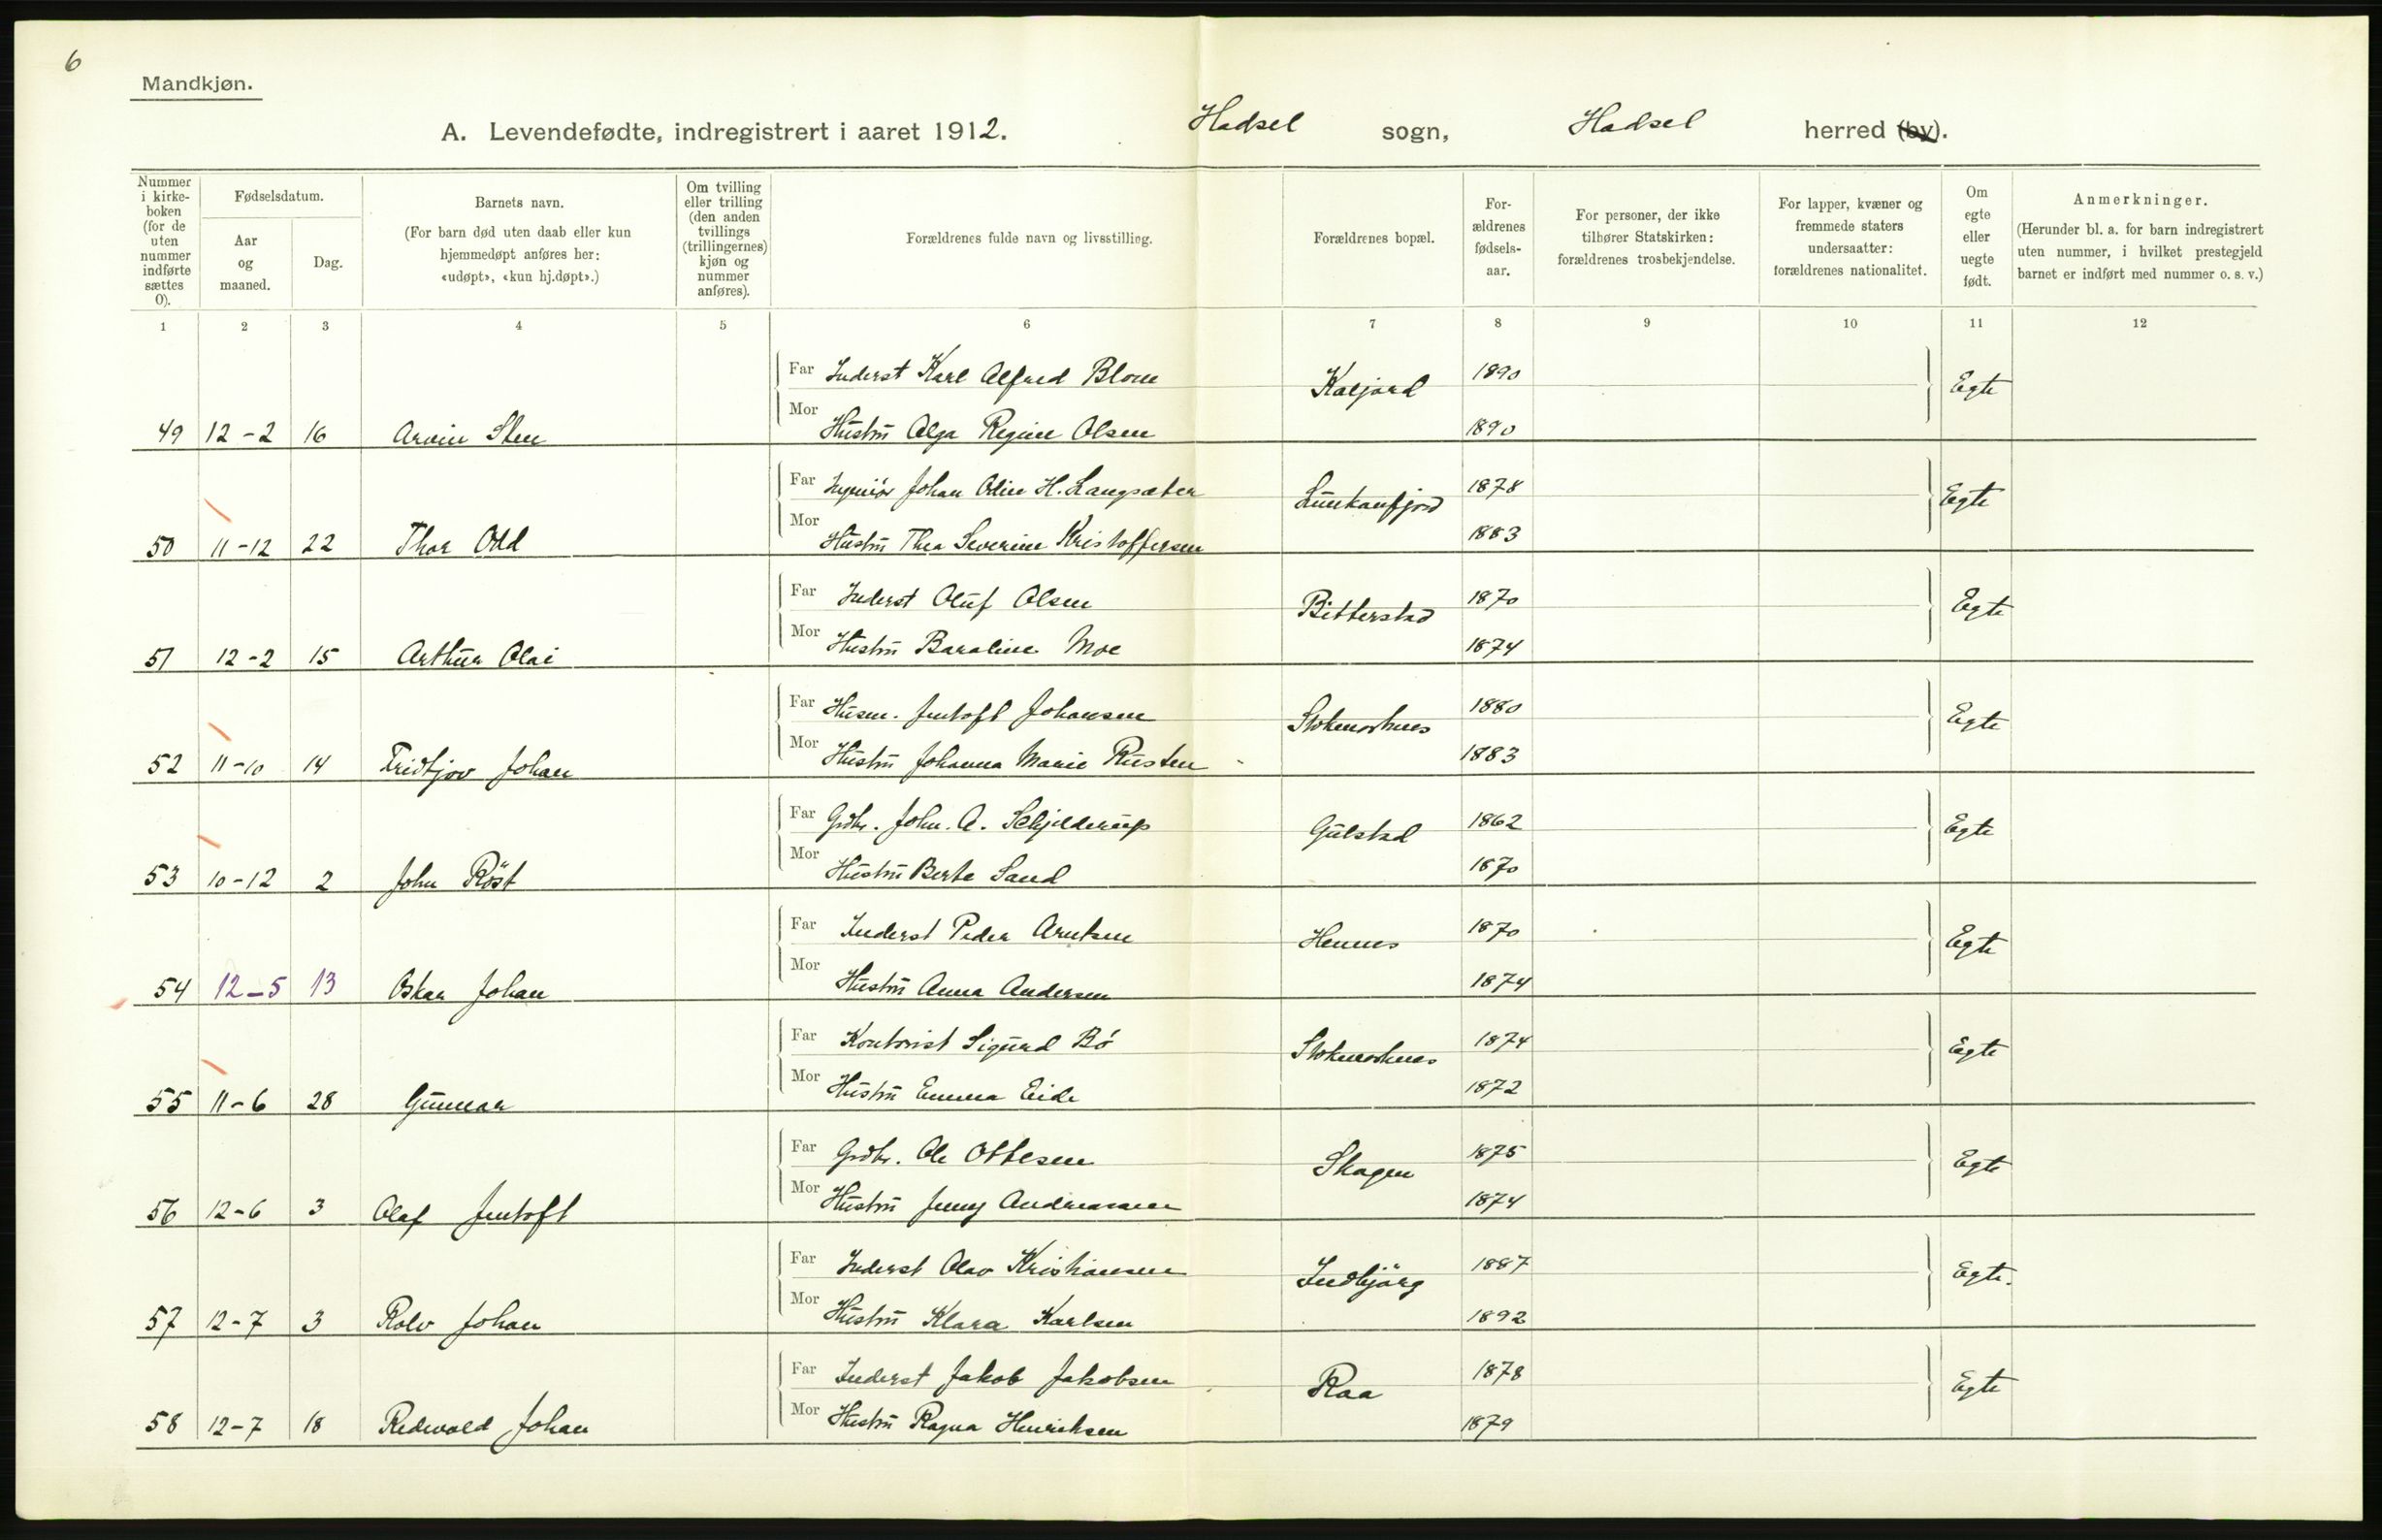 6
Mandkjøn.
A. Levendefødte, indregistrert i aaret 1912. Hadsel sogn, Hadsel herred (by).
Nummer i kirke-boken (for de uten nummer indførte sættes 0).
Fødselsdatum.
Aar og maaned.
Dag.
Barnets navn.
(For barn død uten daab eller kun hjemmedøpt anføres her: «udøpt», «kun hj.døpt».)
Om tvilling eller trilling (den anden tvillings (trillingernes) kjøn og nummer anføres).
Forældrenes fulde navn og livsstilling.
Forældrenes bopæl.
For-ældrenes fødsels-aar.
For personer, der ikke tilhører Statskirken: forældrenes trosbekjendelse.
For lapper, kvæner og fremmede staters undersaatter: forældrenes nationalitet.
Om egte eller uegte født.
Anmerkninger.
(Herunder bl. a. for barn indregistrert uten nummer, i hvilket prestegjeld barnet er indført med nummer o. s. v.)
1 2 3 4 5 6 7 8 9 10 11 12
Far Inderst Karl Alfred Blom Kaljord 1890 Egte
49 12-2 16 Arvin Sten Mor Hustru Alga Regine Olsen 1890
Far Ingeniör Johan Odin H. Langsæter Lunkanfjord 1878 Egte
50 11-12 22 Thor Odd Mor Hustru Thea Severine Kristoffersen 1883
Far Inderst Oluf Olsen Bitterstad 1870 Egte
51 12-2 15 Arthur Olai Mor Hustru Baroline Moe 1874
Far Husm. Jentoft Johansen Stokmarknes 1880 Egte
52 11-10 14 Fridtjov Johan Mor Hustru Johanna Marie Rusten 1883
Far Grdbr. John. A. Schjelderup Gulstad 1862 Egte
53 10-12 2 John Röst Mor Hustru Berte Sand 1870
Far Inderst Peder Arntsen Hennes 1870 Egte
54 12-5 13 Oskar Johan Mor Hustru Anna Andersen 1874
Far Kontorist Sigurd Bö Stokmarknes 1874 Egte
55 11-6 28 Gunnar Mor Hustru Emma Eide 1872
Far Grdbr. Ole Ottesen Skagen 1875 Egte
56 12-6 3 Olaf Jentoft Mor Hustru Jenny Andreassen 1874
Far Inderst Olav Kristiansen Indbjörg 1887 Egte.
57 12-7 3 Rolv Johan Mor Hustru Klara Karlsen 1892
Far Inderst Jakob Jakobsen Raa 1878 Egte
58 12-7 18 Redvald Johan Mor Hustru Ragna Henriksen 1879